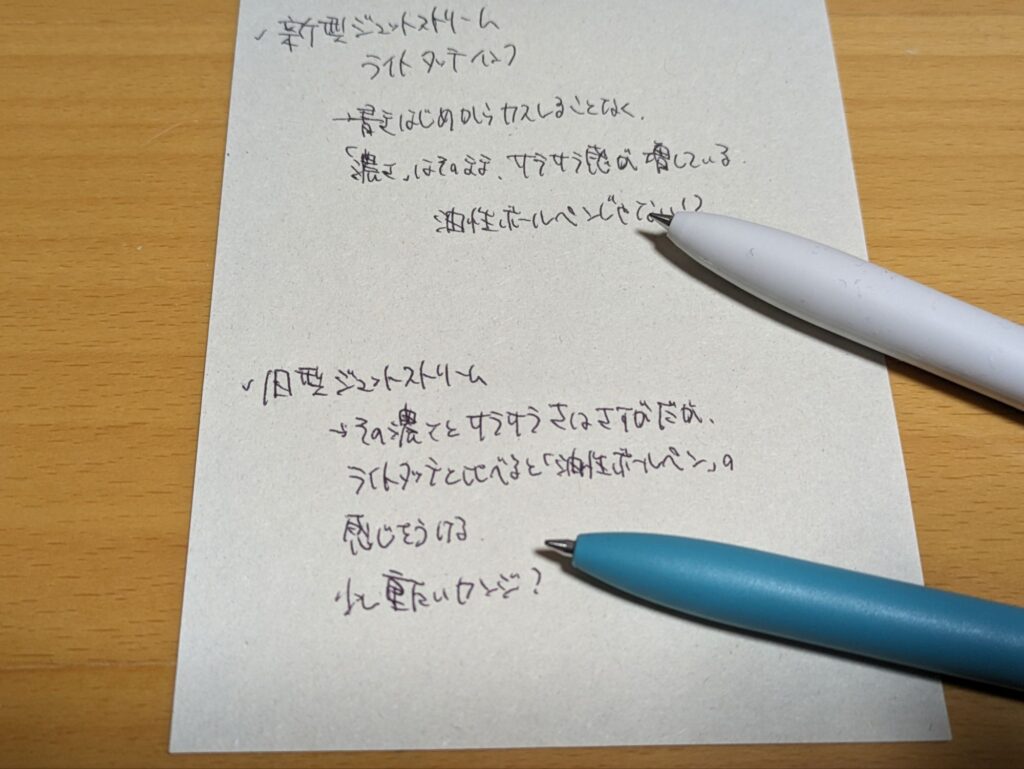 ✓ 新型ジェットストリーム
ライトタッチインク
→書きはじめからカスレることなく、
「濃さ」はそのまま、サラサラ感が増している.
油性ボールペンじゃない
✓ 旧型ジェットストリーム
→その濃さとサラサラさはさすがだが、
ライトタッチと比べると「油性ボールペン」の
感じをうける.
少し重たいカンジ?